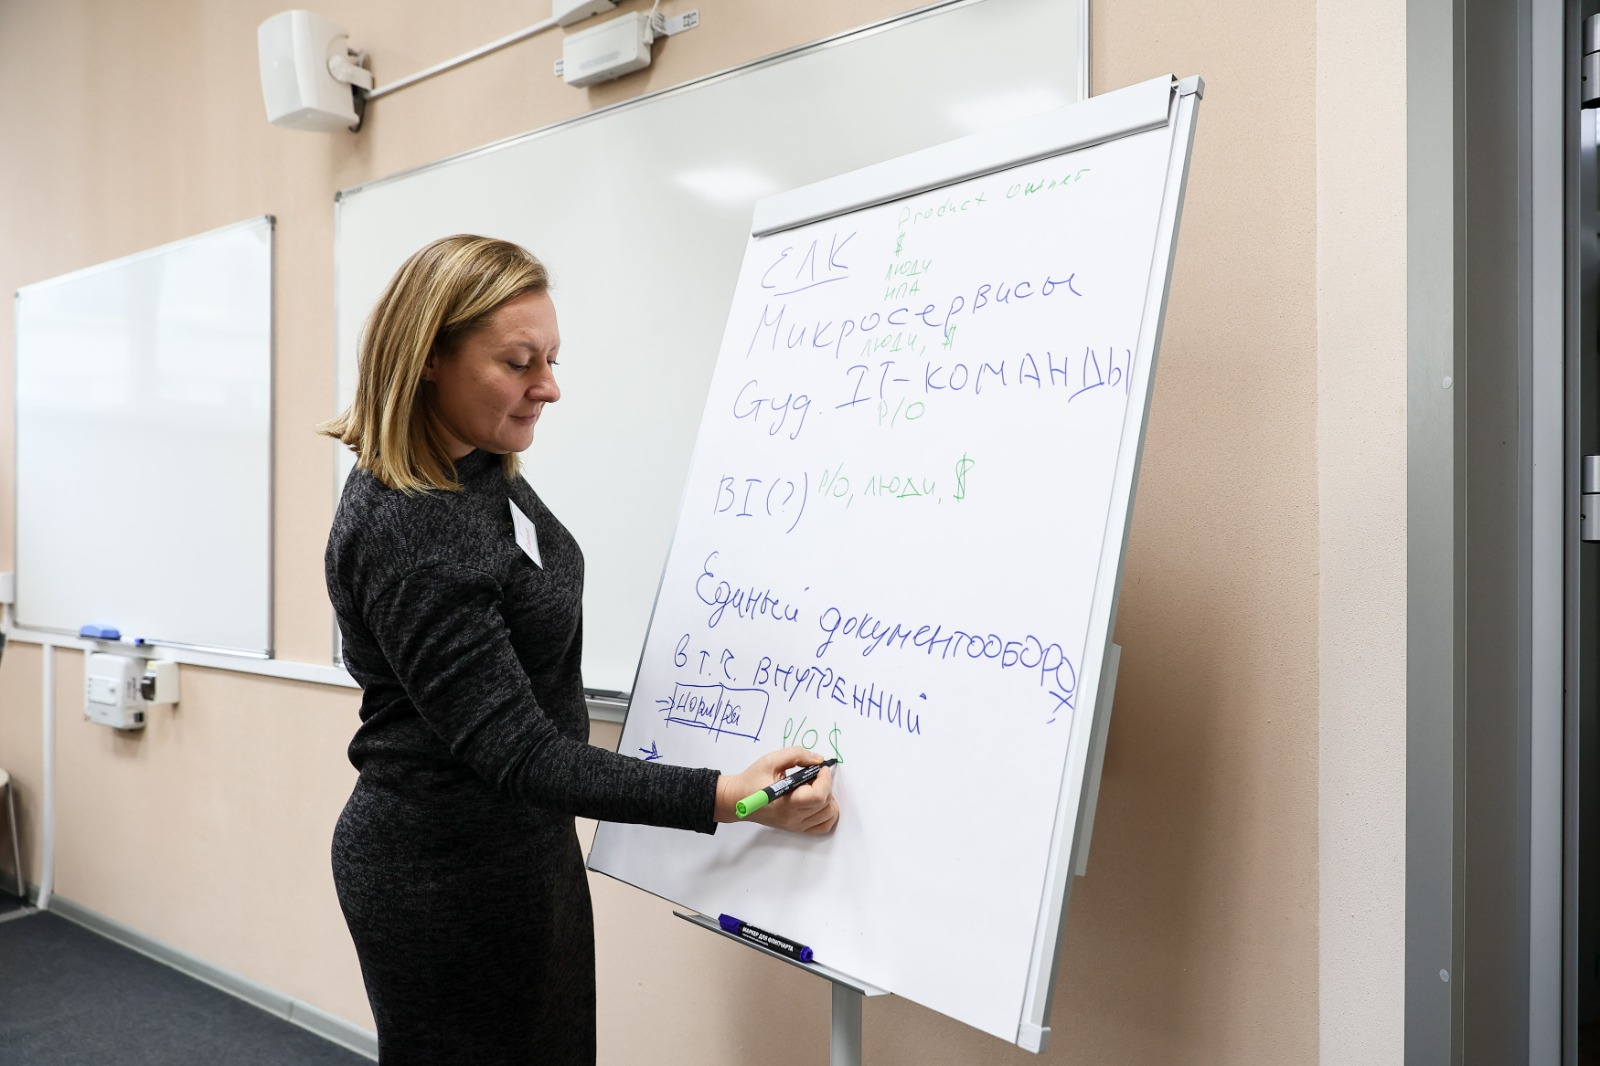 Product owner
$
ЕЛК
люди
НПА
Микросервисы
люди, $
Студ. IT-КОМАНДЫ
P/O
BI(?) P/O, люди, $
Единый документооборот,
в т.ч. ВНУТРЕННИЙ
P/O $
МАРКЕР ДЛЯ ФЛИПЧАРТА